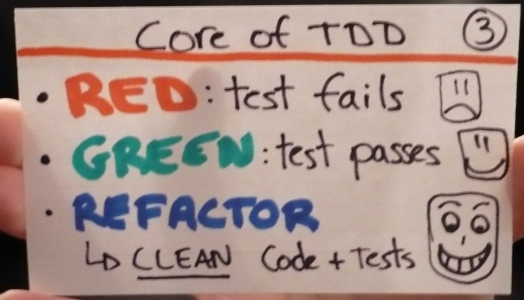 Core of TDD ③
• RED: test fails
• GREEN: test passes
• REFACTOR
↳ CLEAN Code + Tests